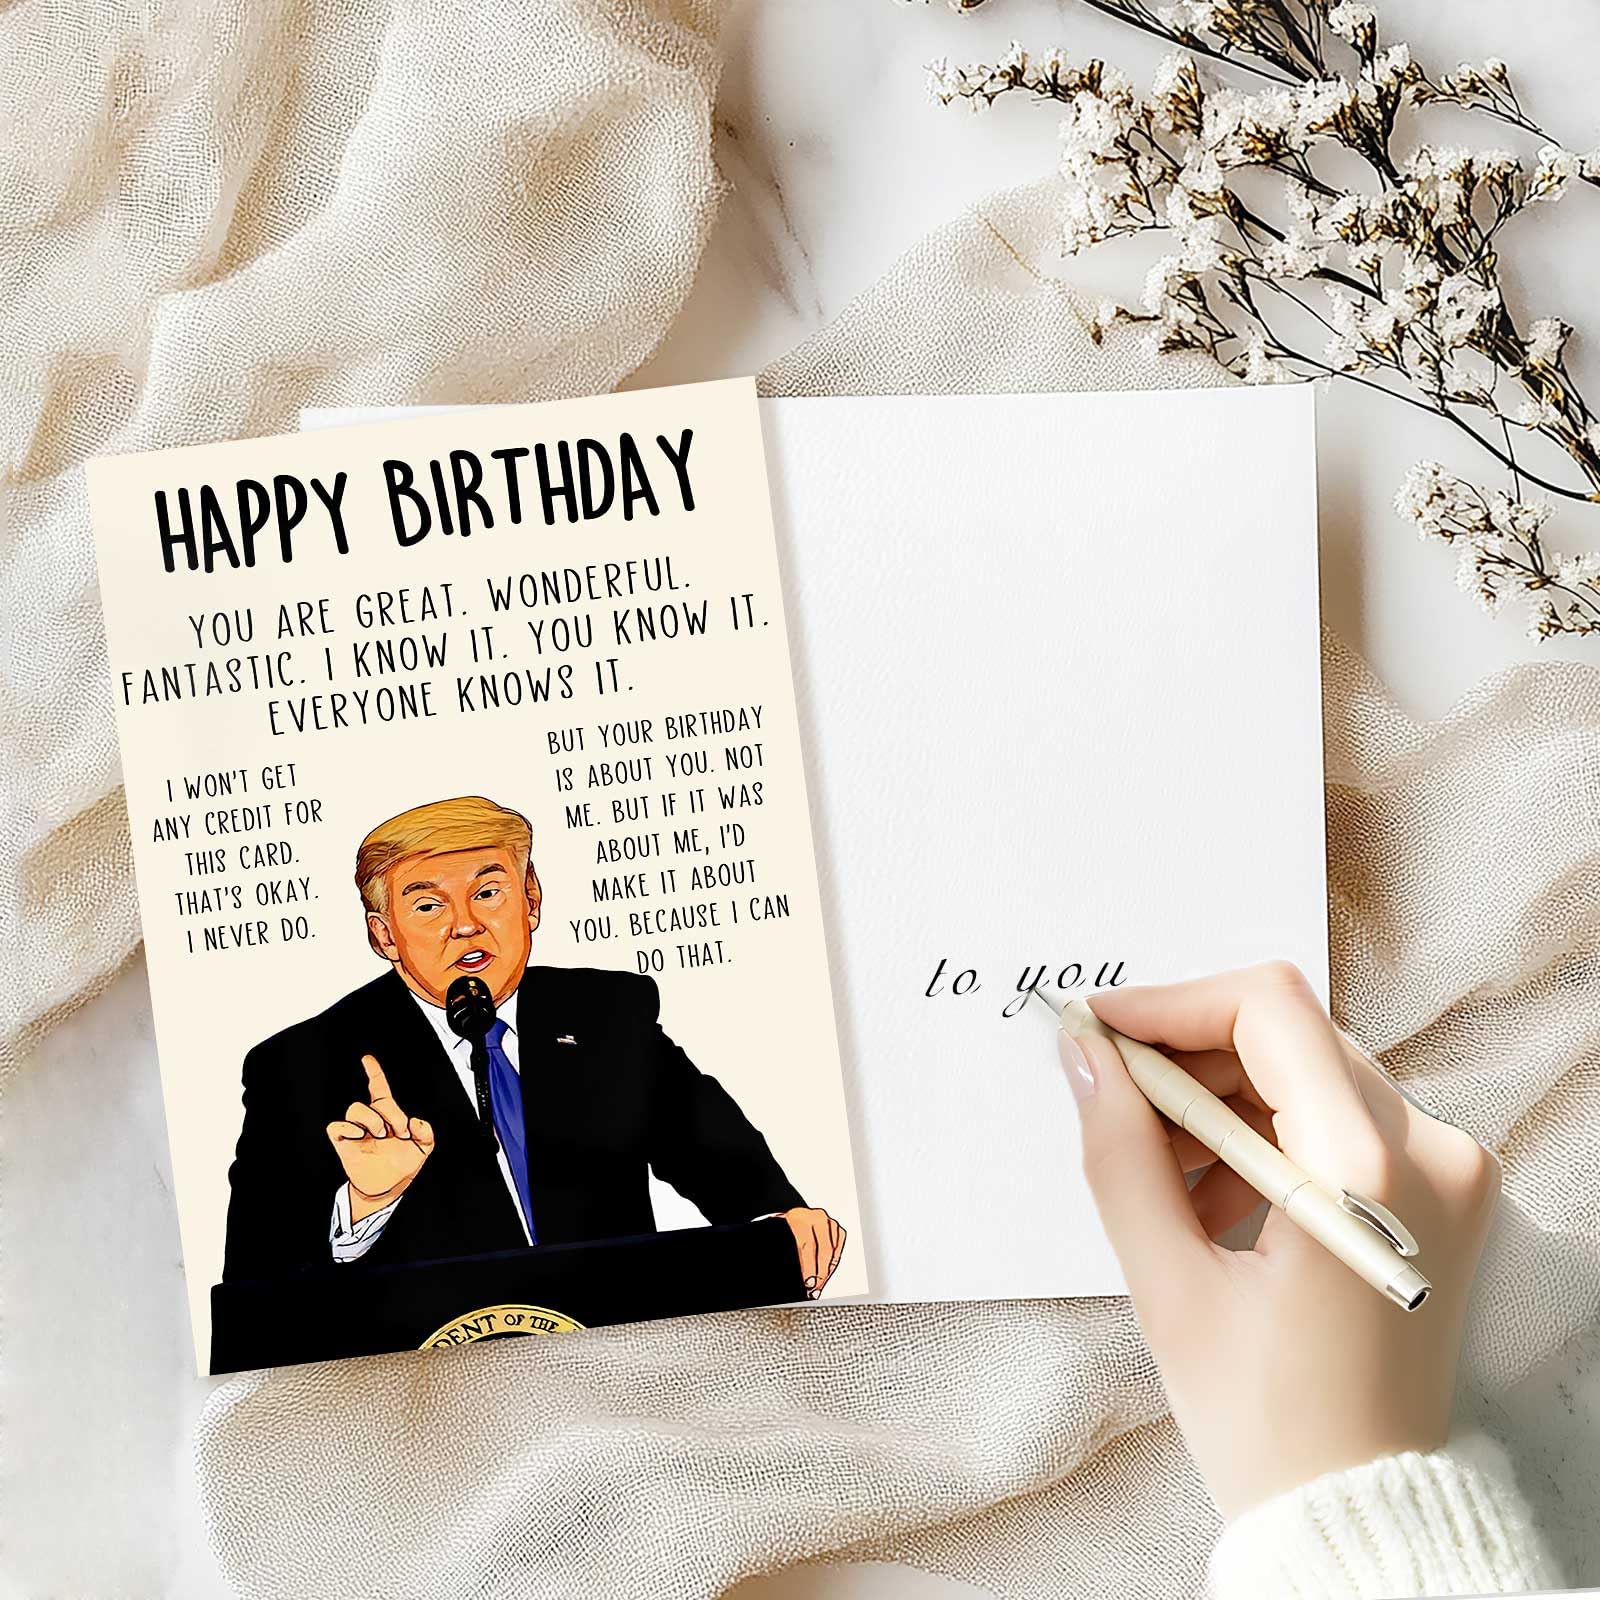 HAPPY BIRTHDAY
YOU ARE GREAT. WONDERFUL.
FANTASTIC. I KNOW IT. YOU KNOW IT.
EVERYONE KNOWS IT.
I WON'T GET
ANY CREDIT FOR
THIS CARD.
THAT'S OKAY.
I NEVER DO.
BUT YOUR BIRTHDAY
IS ABOUT YOU. NOT
ME. BUT IF IT WAS
ABOUT ME, I'D
MAKE IT ABOUT
YOU. BECAUSE I CAN
DO THAT.
DENT OF THE
to you